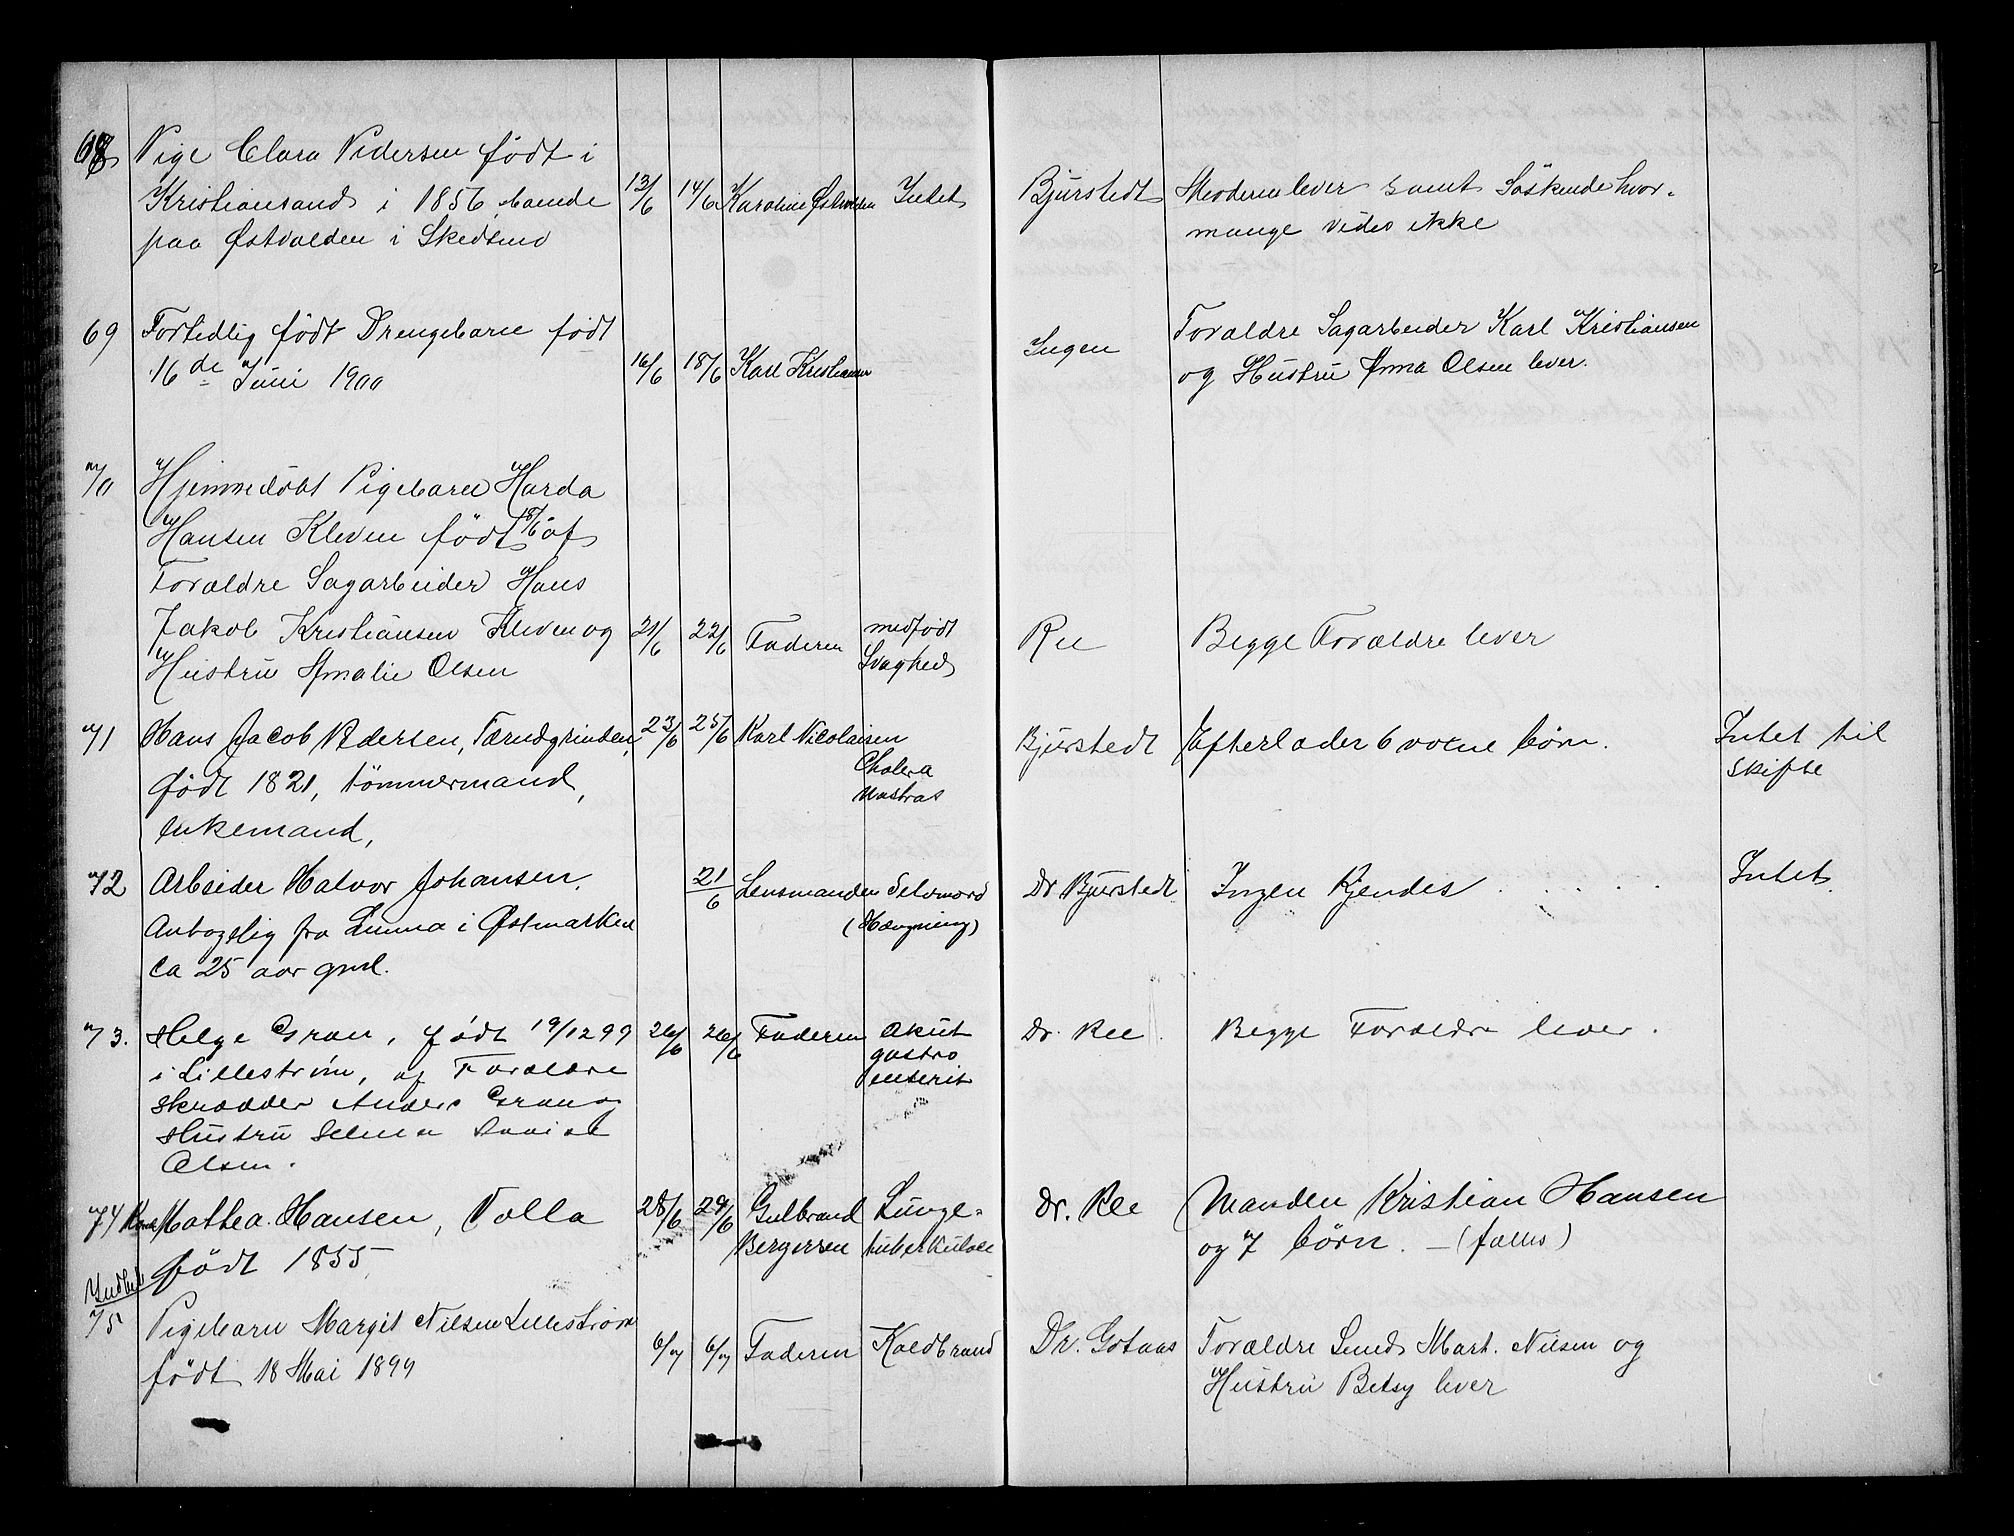 68 Pige Clara Pedersen født i
Kristiansand i 1856, boende 13/6 14/6 Karoline Østvolden Intet Bjurstedt Moderen lever samt Söskende hvor-
paa Østvolden i Skedsmo mange vides ikke
69 Fortidlig født Drengebarn født Ingen Forældre Sagarbeider Karl Kristiansen
16de Juni 1900 16/6 18/6 Karl Kristiansen og Hustru Anna Olsen lever.
70 Hjemmedöbt Pigebarn Harda
Hansen Kleven født 18/6 af
Forældre Sagarbeider Hans
Jakob Kristiansen Kleven og 21/6 22/6 Faderen medfødt Ree Begge Forældre lever
Hustru Amalie Olsen Svaghed
71 Hans Jacob Pedersen, Tærudgrinden, 23/6 25/6 Karl Nicolaisen Bjurstedt Efterlader 6 voxne börn. Intet til
født 1821, tömmermand, Cholera skifte
enkemand, Nostras
72 Arbeider Halvor Johansen. 21/6 Lensmanden Selvmord Dr Bjurstedt Ingen Kjendes Intet
Antagelig fra Linna i Østmarken (Hængning)
ca 25 aar gml.
73. Helge Gran, født 19/12 99 26/6 26/6 Faderen Akut Dr. Ree Begge Forældre lever.
i Lillestrøm, af Forældre gastro
skrædder Anders Gran og enterit
Hustru Selma Lovise
Olsen.
74 Kone Mathea Hansen, Volla 28/6 29/6 Gulbrand Lunge- Dr. Ree Manden Kristian Hansen
født 1855 Bergersen tuberkulose og 7 børn. — (fælles)
Indb
75 Pigebarn Margit Nilsen Lillestrøm 6/7 6/7 Faderen Koldbrand Dr. Gotaas Forældre Smed Mart. Nilsen og
født 18 Mai 1899 Hustru Betsy lever